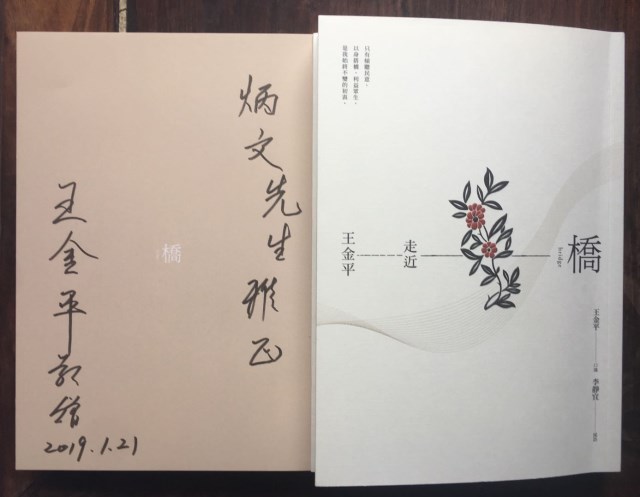 炳文先生雅正
王金平敬贈
2019.1.21
橋
只有傾聽民意，
以身搭橋，利益眾生，
是我始終不變的初衷。
橋
走近
王金平
王金平
口述
李靜宜